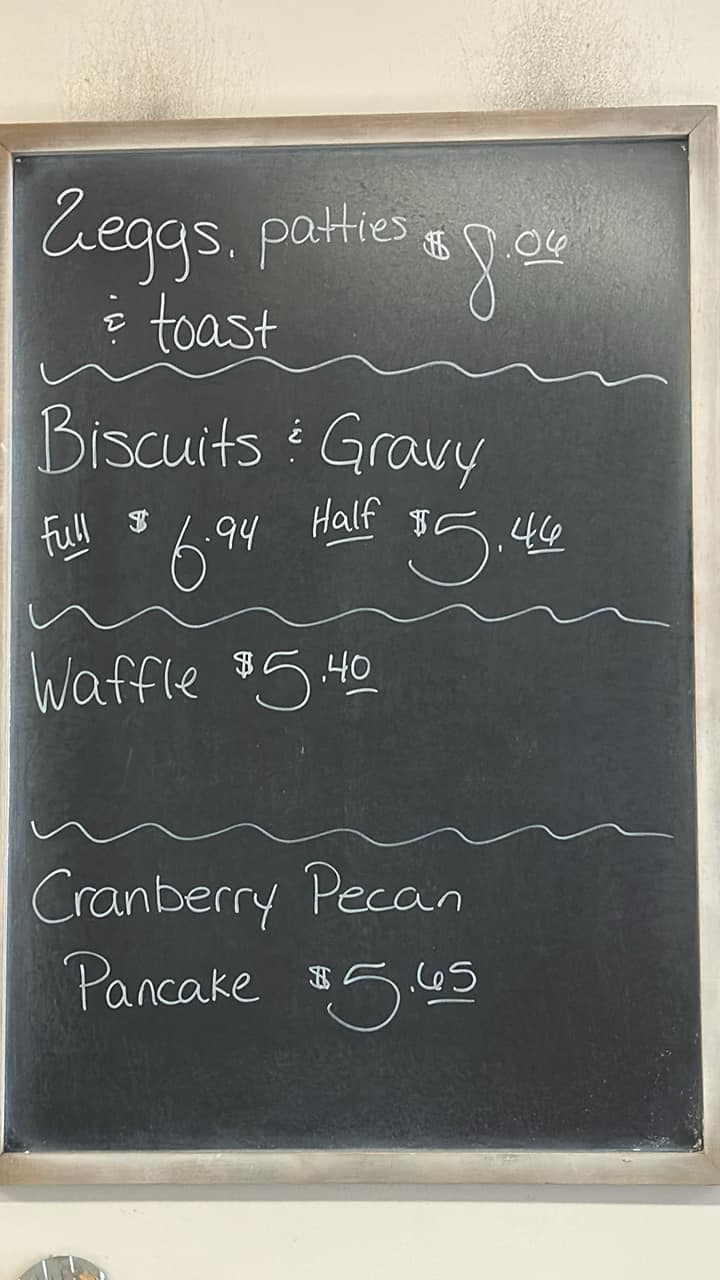 2 eggs, patties $8.06
& toast
Biscuits & Gravy
Full $6.94 Half $5.46
Waffle $5.40
Cranberry Pecan
Pancake $5.65